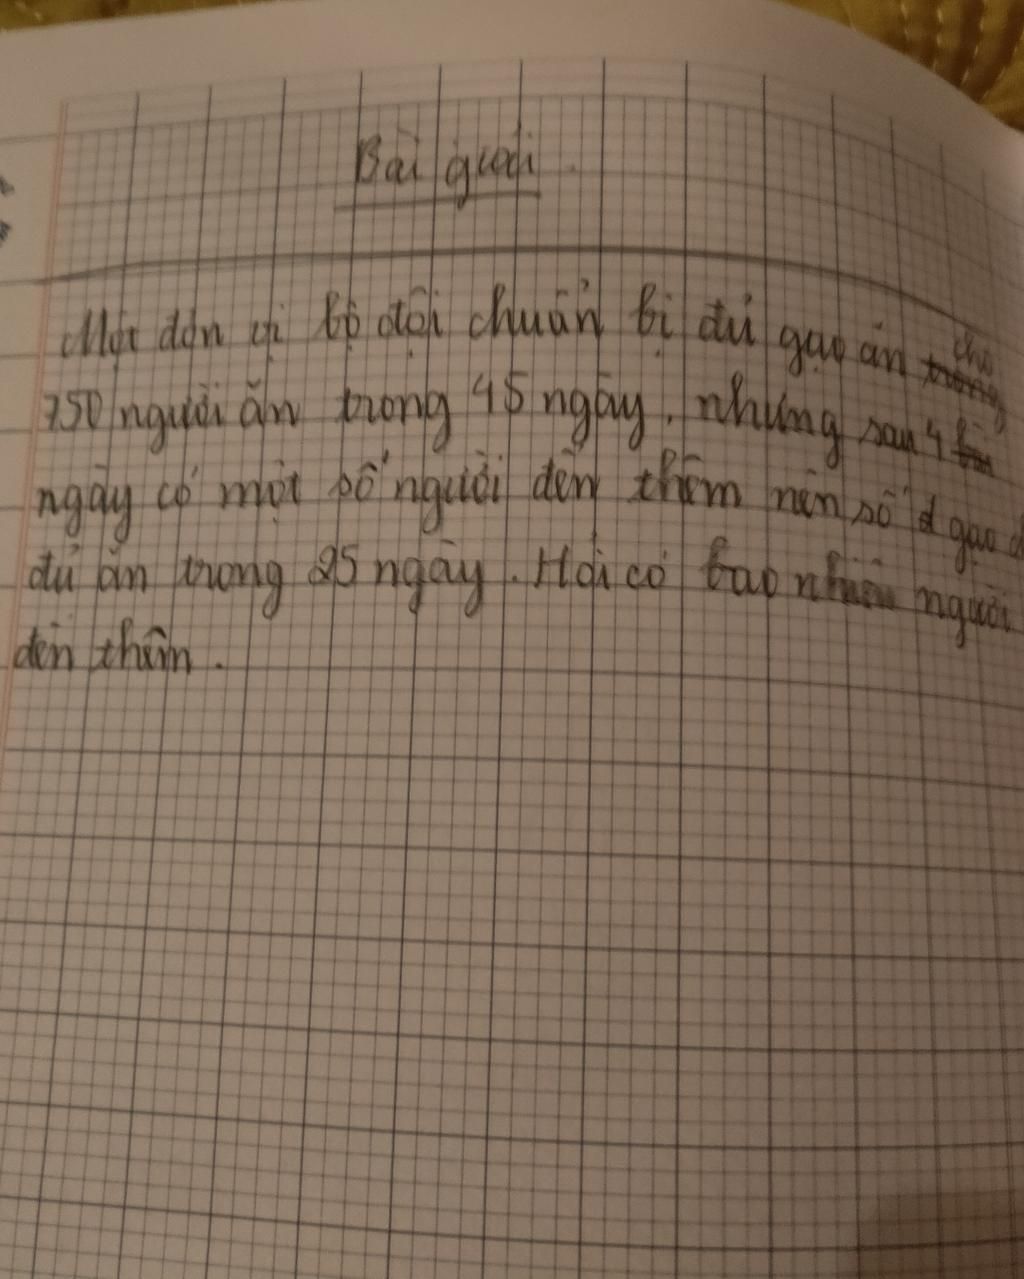 Bài giải
Một đơn vị bộ đội chuẩn bị đủ gạo ăn cho
750 người ăn trong 45 ngày, nhưng sau 4
ngày có một số người đến thêm nên số gạo
đủ ăn trong 25 ngày. Hỏi có bao nhiêu người
đến thêm.